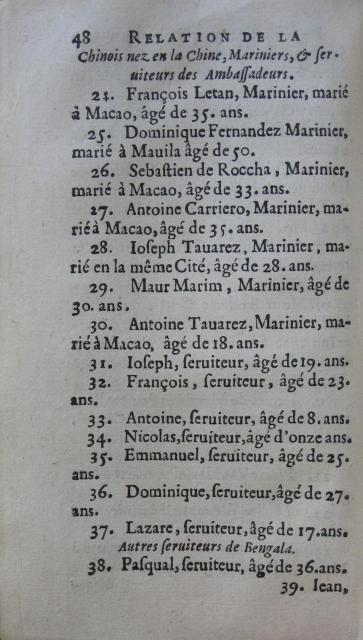 48 RELATION DE LA
Chinois nez en la Chine, Mariniers, & ser-
uiteurs des Ambassadeurs.
24. François Letan, Marinier, marié
à Macao, âgé de 35. ans.
25. Dominique Fernandez Marinier,
marié à Mauila âgé de 50.
26. Sebastien de Roccha, Marinier,
marié à Macao, âgé de 33. ans.
27. Antoine Carriero, Marinier, ma-
rié à Macao, âgé de 35. ans.
28. Ioseph Tauarez, Marinier, ma-
rié en la même Cité, âgé de 28. ans.
29. Maur Marim, Marinier, âgé de
30. ans.
30. Antoine Tauarez, Marinier, ma-
rié à Macao, âgé de 18. ans.
31. Ioseph, seruiteur, âgé de 19. ans.
32. François, seruiteur, âgé de 23.
ans.
33. Antoine, seruiteur, âgé de 8. ans.
34. Nicolas, seruiteur, âgé d'onze ans.
35. Emmanuel, seruiteur, âgé de 25.
ans.
36. Dominique, seruiteur, âgé de 27.
ans.
37. Lazare, seruiteur, âgé de 17. ans.
Autres seruiteurs de Bengala.
38. Pasqual, seruiteur, âgé de 36. ans.
39. Iean,